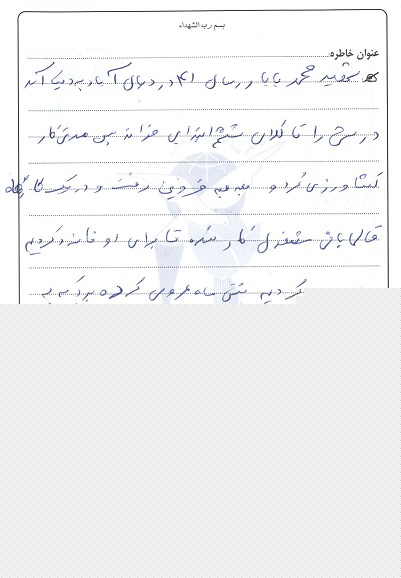 بسم رب الشهداء
عنوان خاطره:
شهید محمد بابا در سال ۴۱ در دهال آباد به دنیا آمد
درسش را تا کلاس ششم ابتدایی خواند پس مدتی کار
کشاورزی کرد و بعد به قزوین رفت و در یک کارگاه
قالی بافی مشغول کار شد تا برای او نامزد کردیم
کردیم شش ماه عروسی کرده بود که به